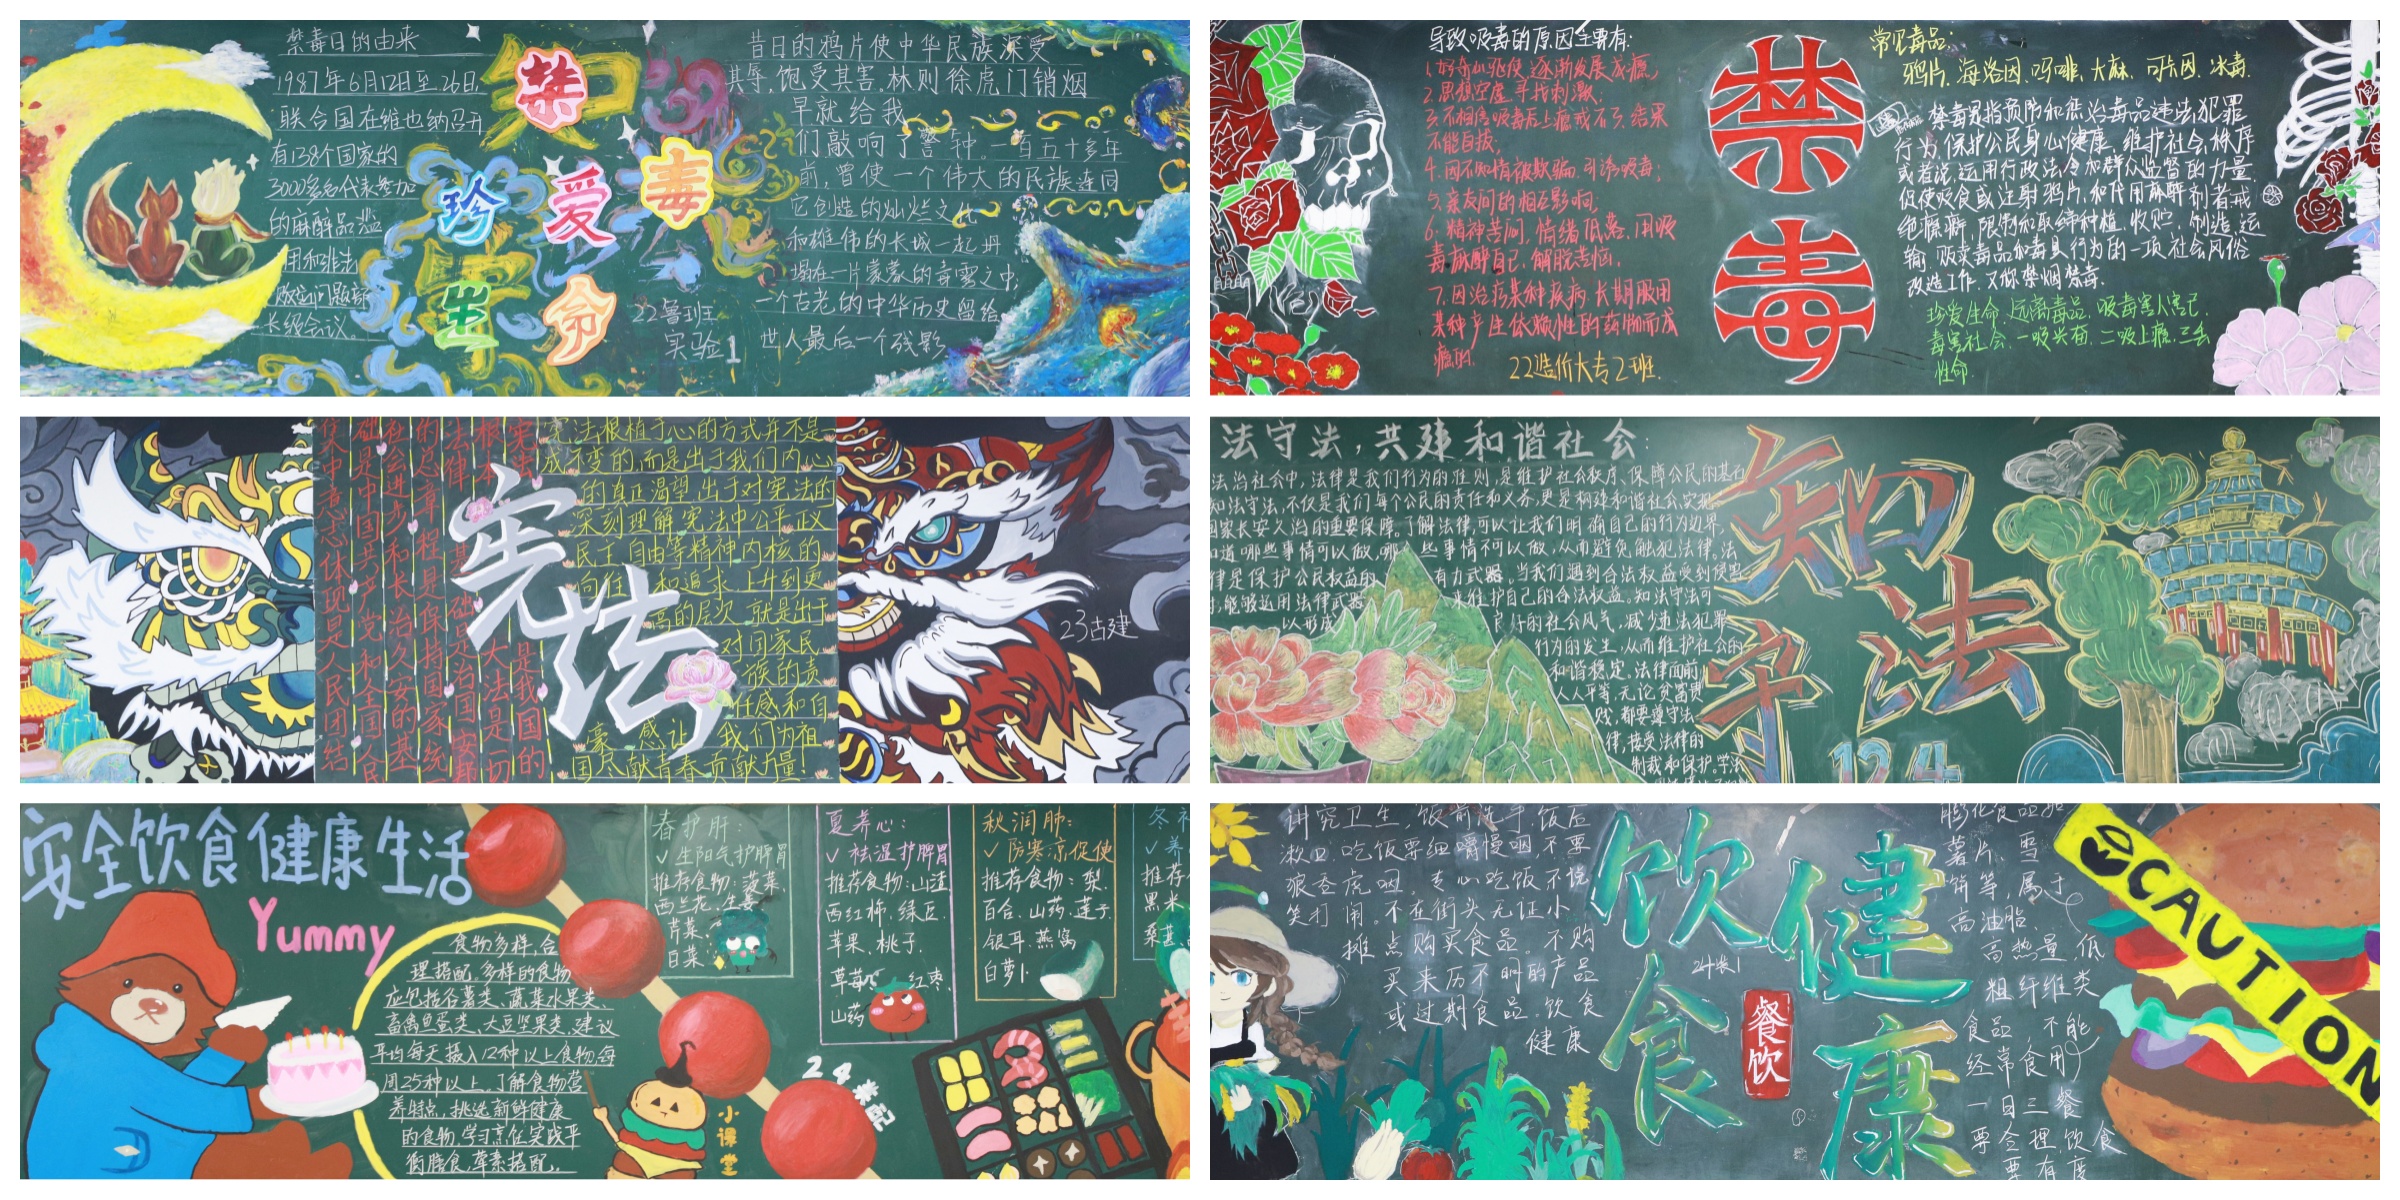 禁毒日的由来
1987年6月12日至26日,
联合国在维也纳召开
有138个国家的
3000多名代表参加
的麻醉品滥
用和非法
败运问题部
长级会议。
知
禁
毒
珍
爱
生
命
22鲁班
实验1
昔日的鸦片使中华民族深受
其辱,饱受其害,林则徐虎门销烟
早就给我
们敲响了警钟。一百五十多年
前,曾使一个伟大的民族连同
它创造的灿烂文化
和雄伟的长城一起坍
塌在一片蒙蒙的毒雾之中,
一个古老的中华历史留给
世人最后一个残影
导致吸毒的原因主要有:
1.好奇心驱使,逐渐发展成瘾;
2.思想空虚,寻找刺激;
3.不相信吸毒后上瘾戒不了,结果
不能自拔;
4.因不知情被欺骗,引诱吸毒;
5.亲友间的相互影响;
6.精神苦闷,情绪低落,用吸
毒麻醉自己,解脱苦恼;
7.因治疗某种疾病,长期服用
某种产生依赖性的药物而成
瘾的.
22造价大专2班.
禁
毒
常见毒品:
鸦片、海洛因、吗啡、大麻、可卡因、冰毒.
禁毒是指预防和惩治毒品违法犯罪
行为,保护公民身心健康,维护社会秩序
或者说,运用行政法令和群众监督的力量
促使吸食或注射鸦片,和代用麻醉剂者戒
绝瘾癖,限制和取缔种植、收贮、制造、运
输、贩卖毒品和毒具行为的一项社会风俗
改造工作,又称禁烟禁毒.
珍爱生命,远离毒品,吸毒害人害己,
毒害社会,一吸兴奋,二吸上瘾,三丢
性命.
宪法是我国的
根本大法是一切
法律基础是治国安邦
的总章程是保持国家统一
社会进步和长治久安的基
础是中国共产党和全国人民
集中意志体现是人民团结
宪法
宪法根植于心的方式并不是
成不变的,而是出于我们内心
的真正渴望,出于对宪法的
深刻理解,宪法中公平,政
民主,自由等精神内核的
向往和追求,上升到更
高的层次,就是出于
对国家民
族的责
任感和自
豪感让我们为祖
国尽献青春,贡献力量!
23古建
法守法,共建和谐社会:
法治社会中,法律是我们行为的准则,是维护社会秩序、保障公民的基石
知法守法,不仅是我们每个公民的责任和义务,更是构建和谐社会,实现
国家长安久治的重要保障。了解法律,可以让我们明确自己的行为边界,
知道哪些事情可以做,哪些事情不可以做,从而避免触犯法律。法
律是保护公民权益的有力武器。当我们遇到合法权益受到侵害
时,能够运用法律武器来维护自己的合法权益。知法守法可
以形成良好的社会风气,减少违法犯罪
行为的发生,从而维护社会的
和谐稳定。法律面前
人人平等,无论贫富贵
贱,都要遵守法
律,接受法律的
制裁和保护。学法
知法
守法
12.4
安全饮食健康生活
Yummy
食物多样,合
理搭配,多样的食物
应包括谷薯类、蔬菜水果类、
畜禽鱼蛋类、大豆坚果类,建议
平均每天摄入12种以上食物,每
周25种以上,了解食物营
养特点,挑选新鲜健康
的食物,学习烹饪实践平
衡膳食,荤素搭配。
春护肝:
✓生阳气护脾胃
推荐食物:菠菜、
西兰花、生姜
青菜、
白菜
夏养心:
✓祛湿护脾胃
推荐食物:山渣
西红柿、绿豆
苹果、桃子、
草莓、红枣、
山药
秋润肺:
✓防寒凉促使
推荐食物:梨、
百合、山药、莲子、
银耳、燕窝
白萝卜
冬补
✓养
推荐
黑米
桑葚
24装配
小课堂
讲究卫生,饭前洗手,饭后
漱口,吃饭要细嚼慢咽,不要
狼吞虎咽,专心吃饭不说
笑打闹。不在街头无证小
摊点购买食品。不购
买来历不明的产品
或过期食品。饮食
健康
饮食
健康
24装1
餐饮
膨化食品如
薯片、雪
饼等,属于
高油脂、
高热量、低
粗纤维类
食品,不能
经常食用
一日三餐
要合理,饮食
要有度
CAUTION